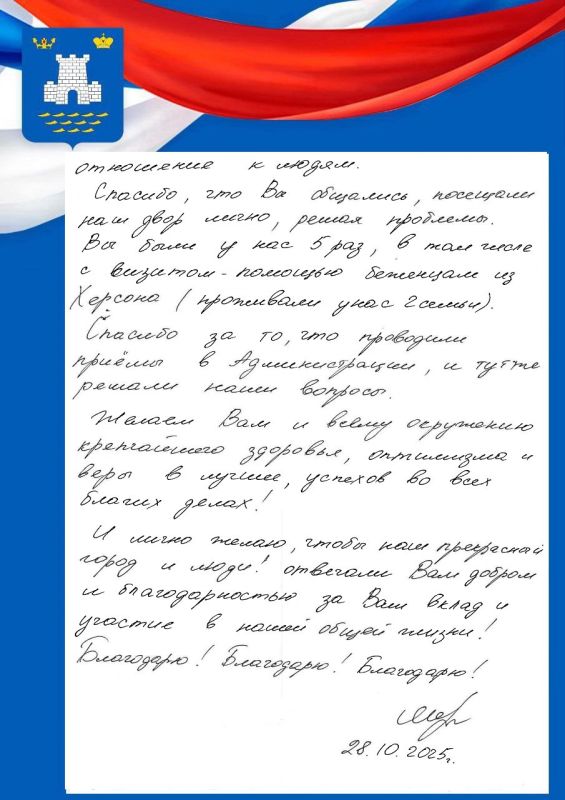 отношение к людям.
Спасибо, что Вы общались, посещали
наш двор лично, решая проблемы.
Вы были у нас 5 раз, в том числе
с визитом - помощью беженцам из
Херсона (проживали у нас 2 семьи).
Спасибо за то, что проводили
приёмы в Администрации, и тут же
решали наши вопросы.
Желаем Вам и всему окружению
крепчайшего здоровья, оптимизма и
веры в лучшее, успехов во всех
благих делах!
И лично желаю, чтобы наш прекрасный
город и люди! отвечали Вам добром
и благодарностью за Ваш вклад и
участие в нашей общей жизни!
Благодарю! Благодарю! Благодарю!
28.10.2025г.